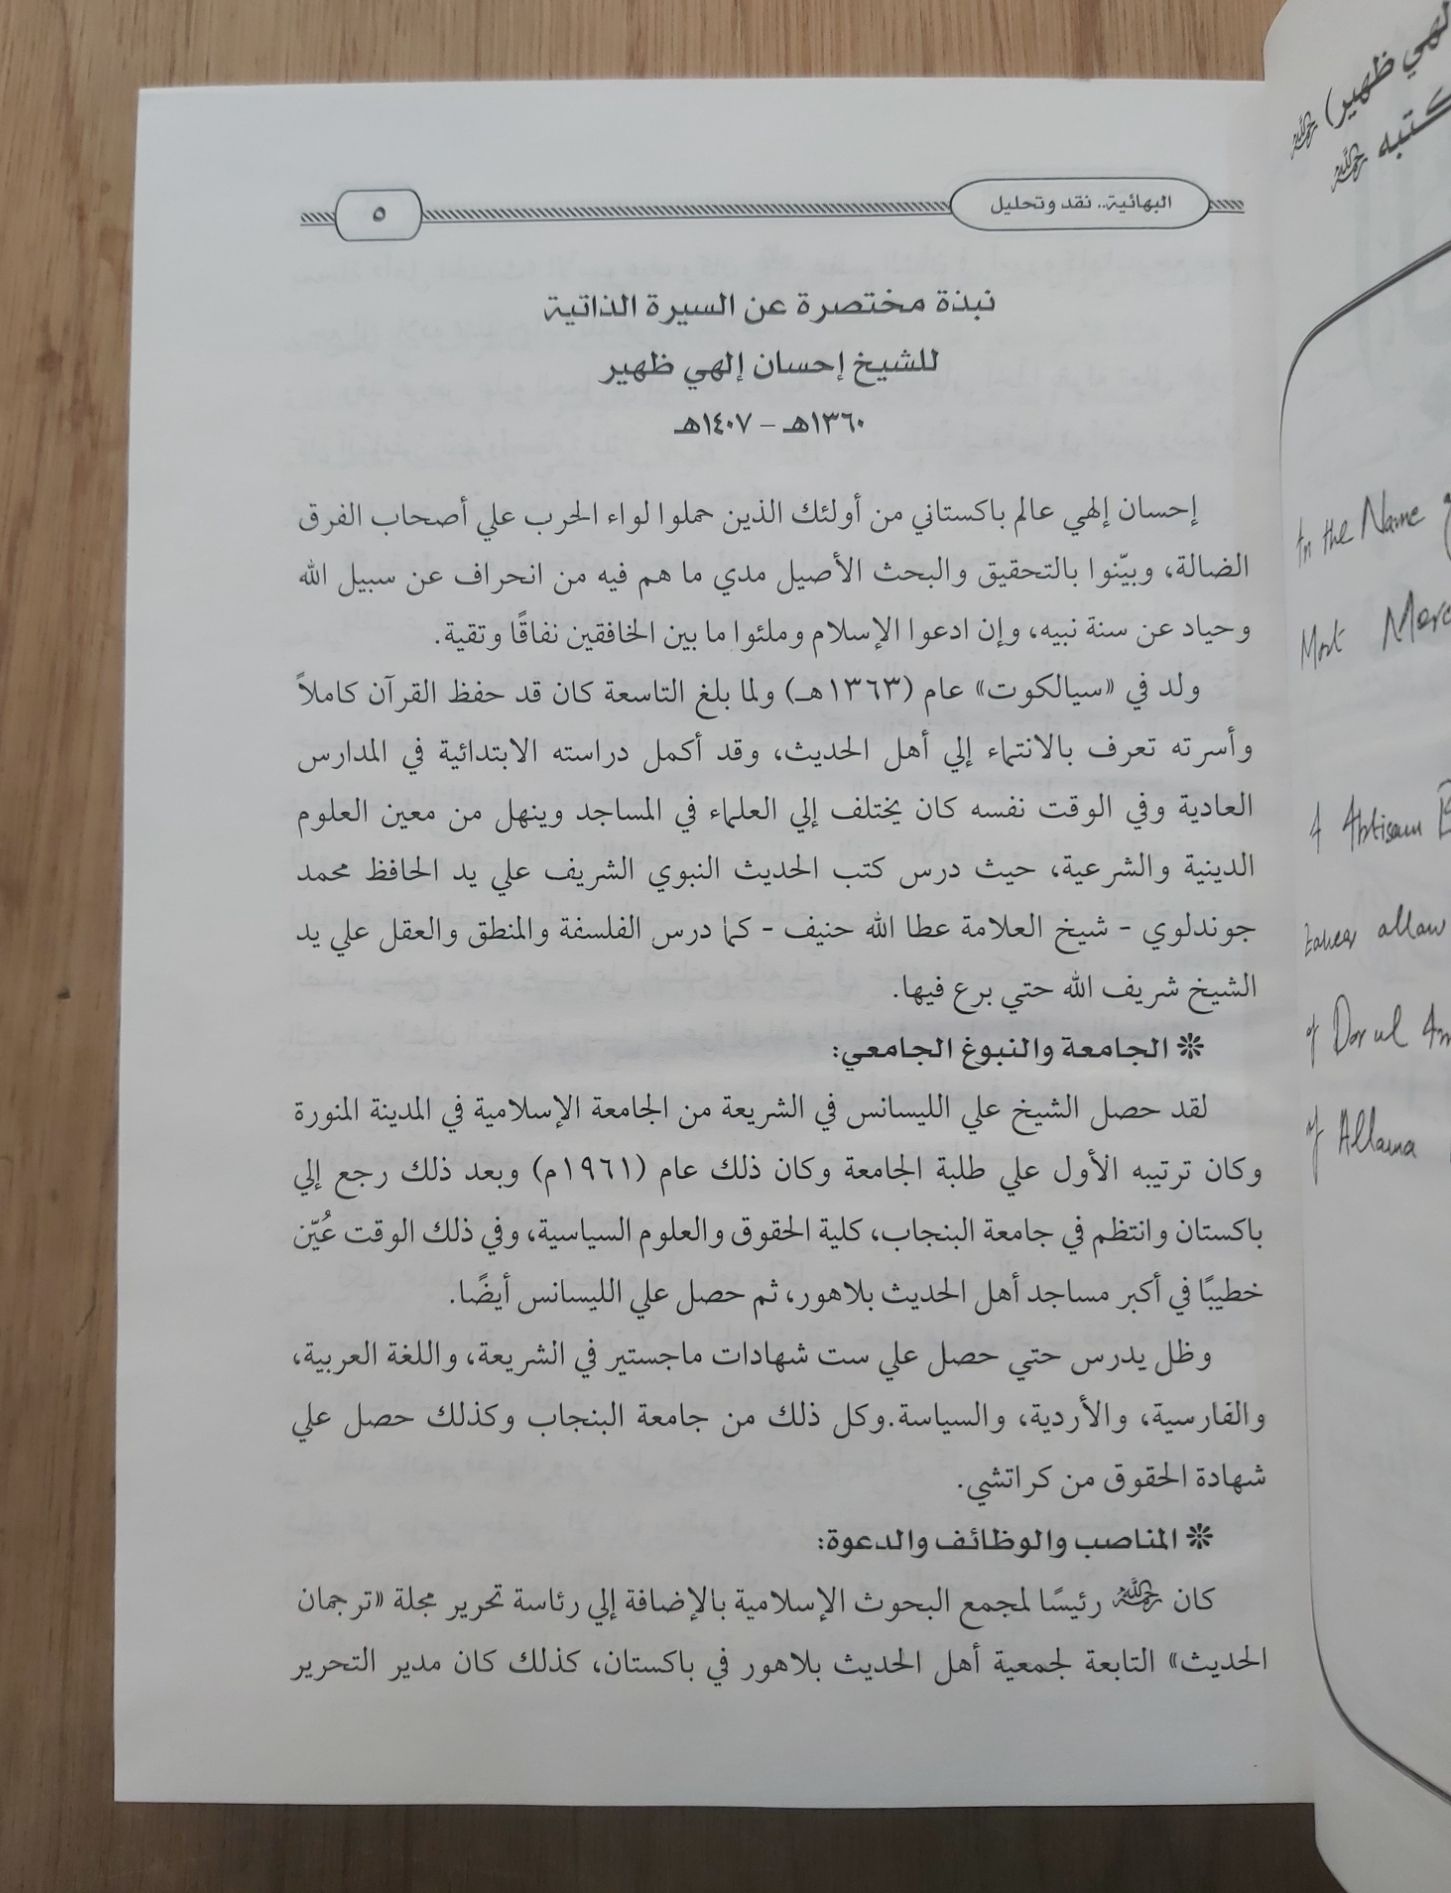 البهائية.. نقد وتحليل
٥
نبذة مختصرة عن السيرة الذاتية
للشيخ إحسان إلهي ظهير
١٣٦٠هـ – ١٤٠٧هـ
إحسان إلهي عالم باكستاني من أولئك الذين حملوا لواء الحرب علي أصحاب الفرق
الضالة، وبيّنوا بالتحقيق والبحث الأصيل مدي ما هم فيه من انحراف عن سبيل الله
وحياد عن سنة نبيه، وإن ادعوا الإسلام وملئوا ما بين الخافقين نفاقًا وتقية.
ولد في «سيالكوت» عام (١٣٦٣هـ) ولما بلغ التاسعة كان قد حفظ القرآن كاملاً
وأسرته تعرف بالانتماء إلي أهل الحديث، وقد أكمل دراسته الابتدائية في المدارس
العادية وفي الوقت نفسه كان يختلف إلي العلماء في المساجد وينهل من معين العلوم
الدينية والشرعية، حيث درس كتب الحديث النبوي الشريف علي يد الحافظ محمد
جوندلوي - شيخ العلامة عطا الله حنيف - كما درس الفلسفة والمنطق والعقل علي يد
الشيخ شريف الله حتي برع فيها.
❊ الجامعة والنبوغ الجامعي:
لقد حصل الشيخ علي الليسانس في الشريعة من الجامعة الإسلامية في المدينة المنورة
وكان ترتيبه الأول علي طلبة الجامعة وكان ذلك عام (١٩٦١م) وبعد ذلك رجع إلي
باكستان وانتظم في جامعة البنجاب، كلية الحقوق والعلوم السياسية، وفي ذلك الوقت عُيّن
خطيبًا في أكبر مساجد أهل الحديث بلاهور، ثم حصل علي الليسانس أيضًا.
وظل يدرس حتي حصل علي ست شهادات ماجستير في الشريعة، واللغة العربية،
والفارسية، والأردية، والسياسة.وكل ذلك من جامعة البنجاب وكذلك حصل علي
شهادة الحقوق من كراتشي.
❊ المناصب والوظائف والدعوة:
كان رحمه الله رئيسًا لمجمع البحوث الإسلامية بالإضافة إلي رئاسة تحرير مجلة «ترجمان
الحديث» التابعة لجمعية أهل الحديث بلاهور في باكستان، كذلك كان مدير التحرير
ظهير) رحمه الله
كتبه رحمه الله
In the Name
Most
of Dar ul
of Allama